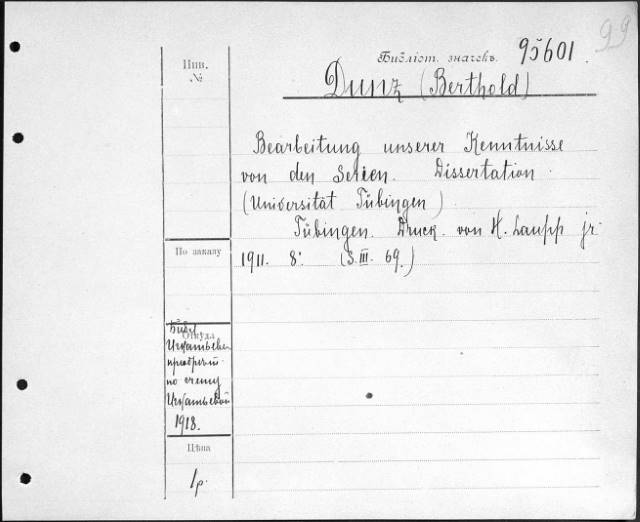 99
Библіот. значекъ. 95601.
Инв.
№
Dunz (Berthold)
Bearbeitung unserer Kenntnisse
von den Serien. Dissertation
(Universität Tübingen)
Tübingen. Druck. von H. Laupp jr
1911. 8: (S. III. 69.)
По заказу
Откуда
Библ
по счету
1918.
Цѣна
1р.